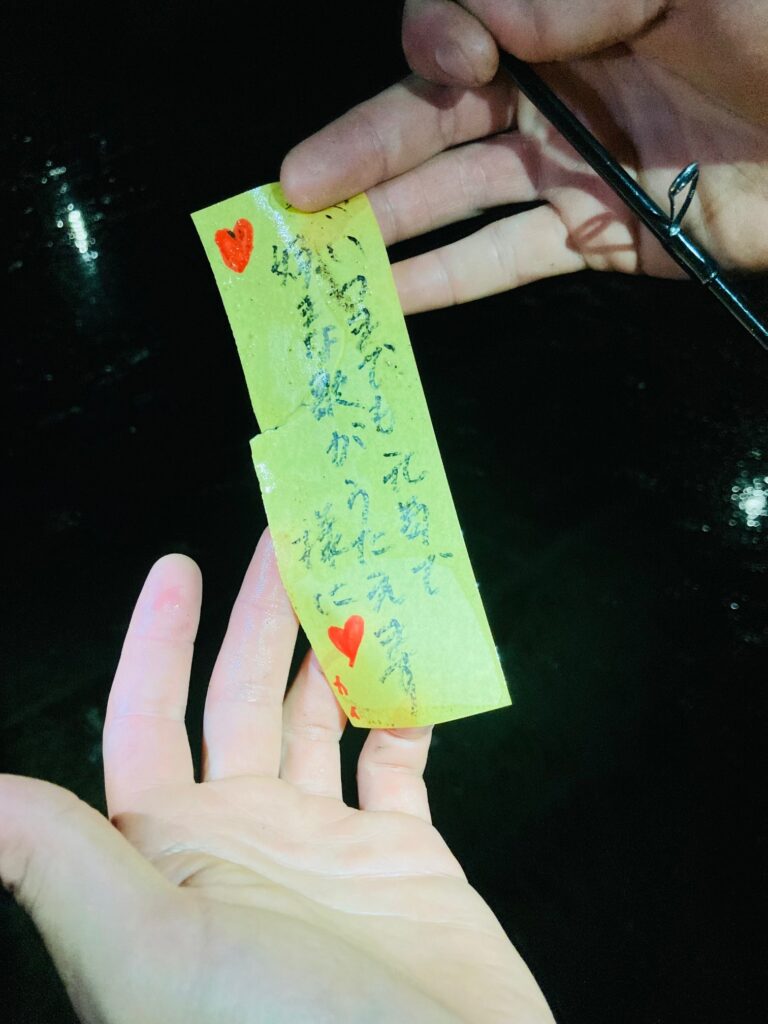 いつまでも元気で
好きな歌がうたえます
様に